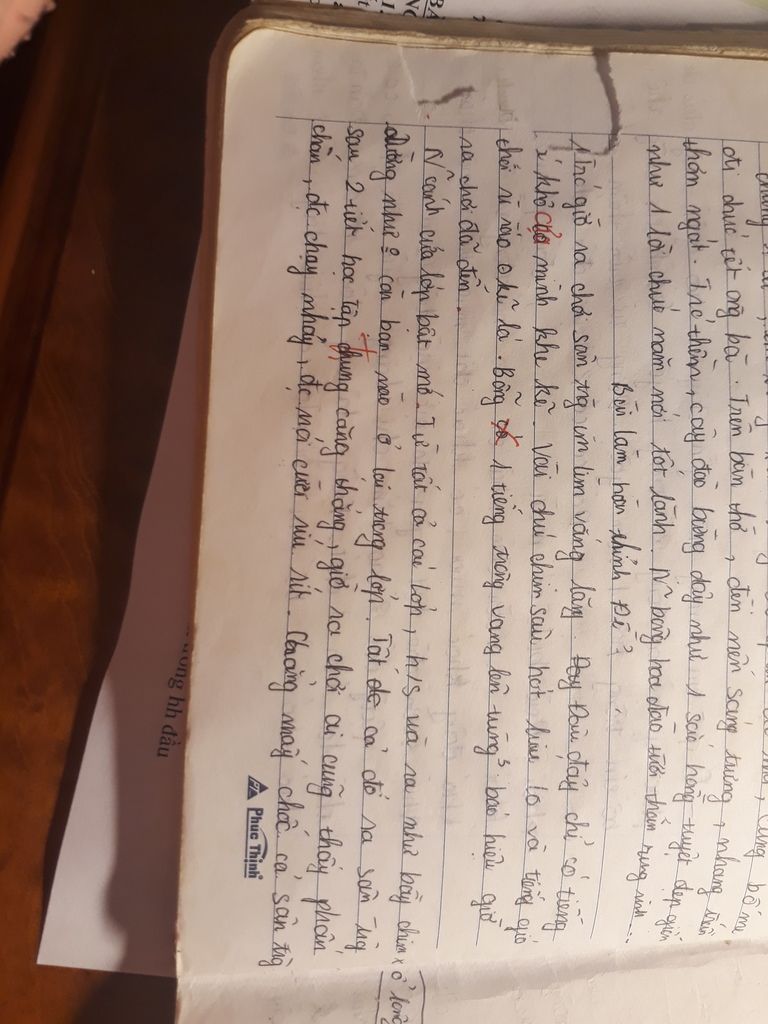 đi chúc tết ông bà. Trên bàn thờ, đèn nến sáng trưng, nhang trầm
thơm ngát. Trc' thềm, cây đào bừng dậy như 1 sắc hồng tuyệt đẹp
như 1 lời chúc năm mới tốt lành. N~ bông hoa đào tươi thắm rung rinh...
Bài làm hoàn chỉnh Đề 2
Trc' giờ ra chơi sân trg im lìm vắng lặng. Đây Đâu đây chỉ có tiếng
khô của mình khe kẽ. Vài chú chim sâu hót líu lo và tiếng gió
thổi rì rào kẽ lá. Bỗng có 1 tiếng trống vang lên tùng³ báo hiệu giờ
ra chơi đã đến.
N~ cánh cửa lớp bật mở. Từ tất cả các lớp, h/s ùa ra như bầy chim x ổ lồng
dường như o còn bạn nào ở lại trong lớp. Tất cả đổ ra sân trg
sau 2 tiết học tập chung căng thẳng, giờ ra chơi ai cũng thấy phấn
chấn, đc chạy nhảy, đc nói cười ríu rít. Chẳng mấy chốc cả sân trg
Phuc Thịnh
ường hh đầu